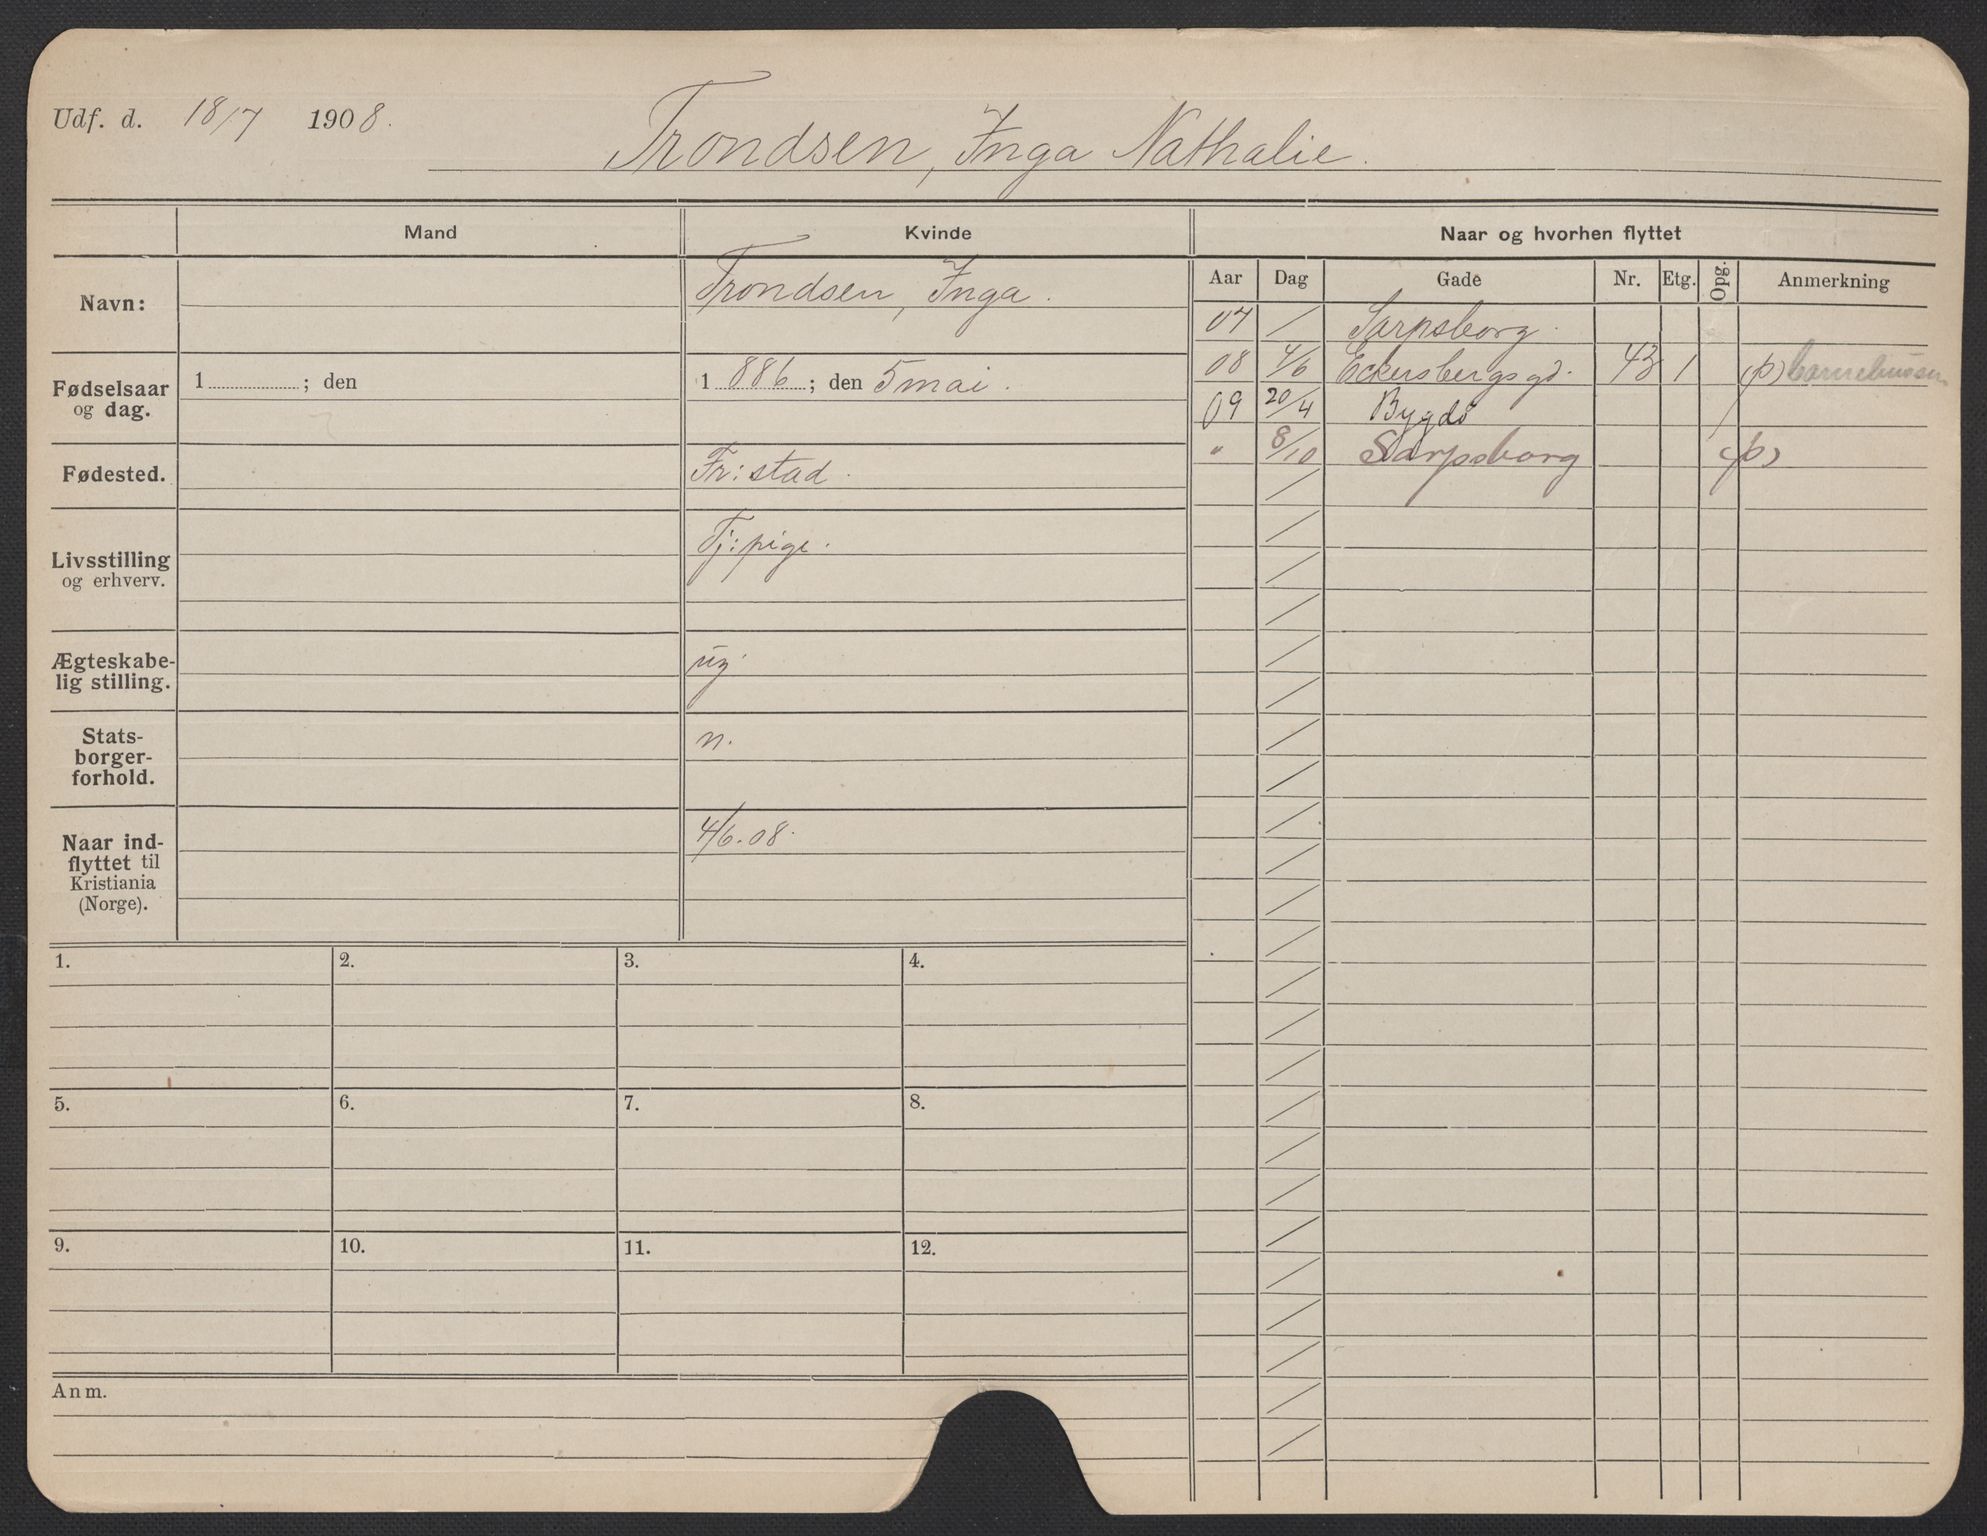 Udf. d. 18/7 1908.
Trondsen, Inga Nathalie.
Mand Kvinde Naar og hvorhen flyttet
Navn: Trondsen, Inga.
Fødselsaar og dag. 1 ; den 1 886 ; den 5 mai.
Fødested. Fr:stad.
Livsstilling og erhverv. Tj:pige.
Ægteskabe-
lig stilling. ug.
Stats-
borger-
forhold. n.
Naar ind-
flyttet til
Kristiania
(Norge). 4/6.08.
Aar Dag Gade Nr. Etg. Opg. Anmerkning
07 / Sarpsborg.
08 4/6 Eckersbergsgd. 43 1 (p)
09 20/4 Bygdø
" 8/10 Sarpsborg (p)
1. 2. 3. 4.
5. 6. 7. 8.
9. 10. 11. 12.
Anm.